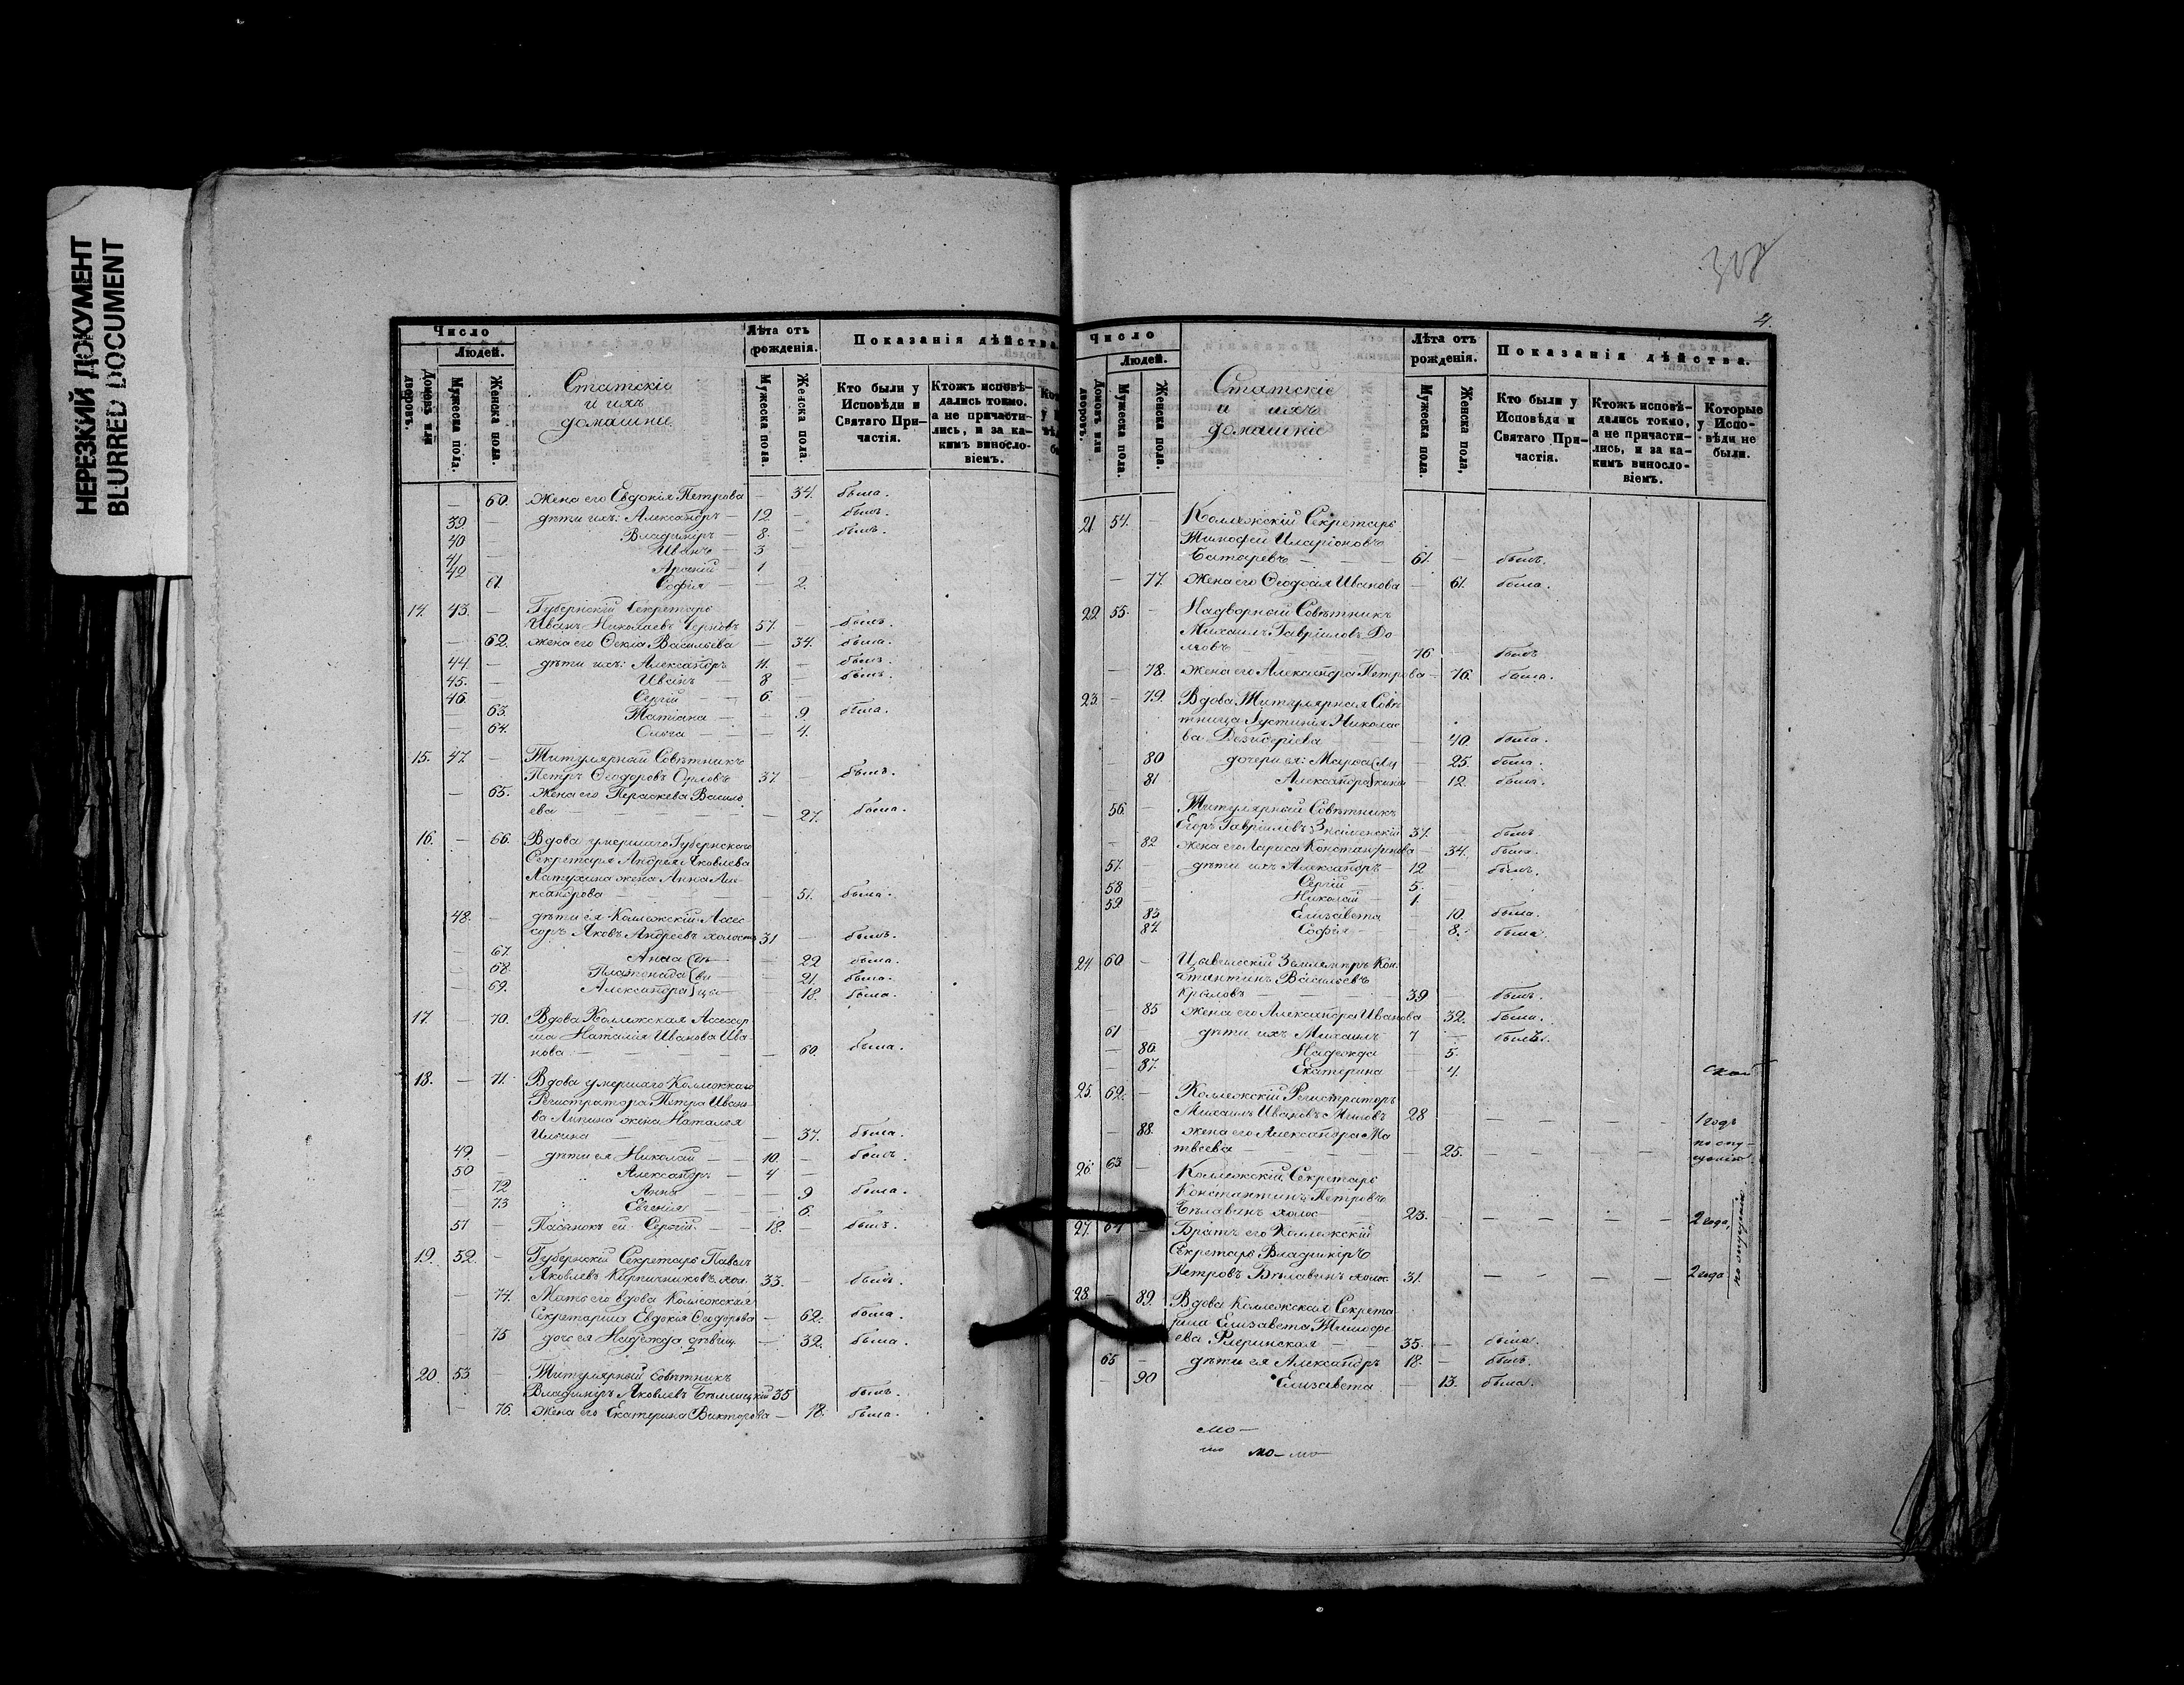 НЕРЕЗКИЙ ДОКУМЕНТ
BLURRED DOCUMENT
Число
Людей.
Домовъ или дворовъ.
Мужеска пола.
Женска пола.
Статскіе
и ихъ
домашніе
Лѣта отъ рожденія.
Мужеска пола.
Женска пола.
Показанія дѣйства
Кто были у Исповѣди и Святаго Причастія.
Ктожъ исповѣдались токмо, а не причастились, и за какимъ винословіемъ.
60. Жена его Евдокія Петрова — 34. была.
39. — дѣти ихъ: Александръ — 12. — былъ.
40 — Владиміръ — 8. — былъ.
41 — Иванъ — 3 —
42 — Арсеній — 1
61. Софія — 2.
14. 43. — Губернскій Секретарь
Иванъ Николаевъ Черновъ 57. — былъ.
— 62. жена его Фекла Васильева — 34. была.
44. — дѣти ихъ: Александръ 11. — былъ.
45. — Иванъ — 8 — былъ.
46. — Сергій — 6. —
— 63. Татіана — 9. была.
— 64. Ольга — 4.
15. 47 — Титулярный Совѣтникъ
Петръ Ѳеодоровъ Орловъ 37 — былъ.
— 65. Жена его Параскева Василь
ева — 27. была.
16. — 66. Вдова умершаго Губернскаго
Секретаря Андрея Яковлева
жена Анна Але-
ксандрова — 51. была.
48. — дѣти ея Коллежскій Ассес
соръ Яковъ Андреевъ холостъ 31 — былъ.
— 67. Анна — 22 была.
— 68. — 21. была.
— 69. Александра — 18. была.
17. — 70. Вдова Коллежская Ассесор
ша Наталія Иванова Ива-
нова — 60. была.
18. — 71. Вдова умершаго Коллежскаго
Регистратора Петра Ивано-
ва Липина жена Наталья
Ильина — 37. была.
49. — дѣти ея Николай — 10. — былъ.
50 — Александръ — 4 —
— 72 Анна — 9 была.
— 73 Евгенія — 6.
51 — Пасынокъ ей Сергій. — 18. былъ.
19. 52. — Губернскій Секретарь Павелъ
Яковлевъ Кирпичниковъ хол. 33. — былъ.
— 74. Мать его вдова Коллежская
Секретарша Евдокія Ѳеодорова — 62. была.
— 75 дочь ея Надежда дѣвиц. — 32. была.
20 53 — Титулярный Совѣтникъ
Владиміръ Яковлевъ Бѣллицкій 35 былъ.
— 76. жена его Екатерина Викторова — 18. была.
4.
Число
Людей.
Домовъ или дворовъ.
Мужеска пола.
Женска пола.
Статскіе
и ихъ
домашніе
Лѣта отъ рожденія.
Мужеска пола.
Женска пола,
Показанія дѣйства.
Кто были у Исповѣди и Святаго Причастія.
Ктожъ исповѣдались токмо, а не причастились, и за какимъ винословіемъ.
Которые у Исповѣди не были.
21. 54. — Коллежскій Секретарь
Тимофей Иларіоновъ
Батаревъ — 61. — былъ.
— 77. Жена его Ѳеодосія Иванова — 61. была.
22 55. — Надворный Совѣтникъ
Михаилъ Гавріиловъ До-
лговъ — 76 — былъ
— 78. Жена его Александра Петрова — 76. была.
23. — 79. Вдова Титулярная Совѣ
тница Іустинія Николае
ва Дезидеріева — 40. была.
80 дочери ея: Марѳа — 25. была.
81 Александра — 12. была.
56. — Титулярный Совѣтникъ
Егоръ Гавріиловъ Знаменскій 37. — былъ
— 82 жена его Лариса Константинова — 34. была.
57. — дѣти ихъ Александръ — 12 — былъ.
58 — Сергій — 5.
59. — Николай — 1.
83 Елисавета — 10. была.
84. Софія — 8. была.
24. 60 — Цывильскій Землемѣръ Кон-
стантинъ Васильевъ
Крыловъ — 39 — былъ.
— 85 жена его Александра Иванова 32. была.
61 — дѣти ихъ Михаилъ 7 — былъ.
— 86. Надежда — 5.
— 87. Екатерина — 4.
25. 62. — Коллежскій Регистраторъ
Михаилъ Ивановъ 28 — 1 годъ
— 88. жена его Александра Ма по опу-
твѣева — 25. — щенію.
26. 63. — Коллежскій Секретарь
Константинъ Петровъ
Бѣлавинъ холос — 23. — 2 года,
27. 64 — Братъ его Коллежскій
Секретарь Владиміръ
Петровъ Бѣлавинъ холос. 31. — 2 года
по опущенію.
28. — 89. Вдова Коллежская Секрета-
рша Елисавета Тимофе
ева — 35. — была.
65 — дѣти ея Александръ 18. — былъ.
— 90 Елисавета — 13. была.
мо —
мо — мо —